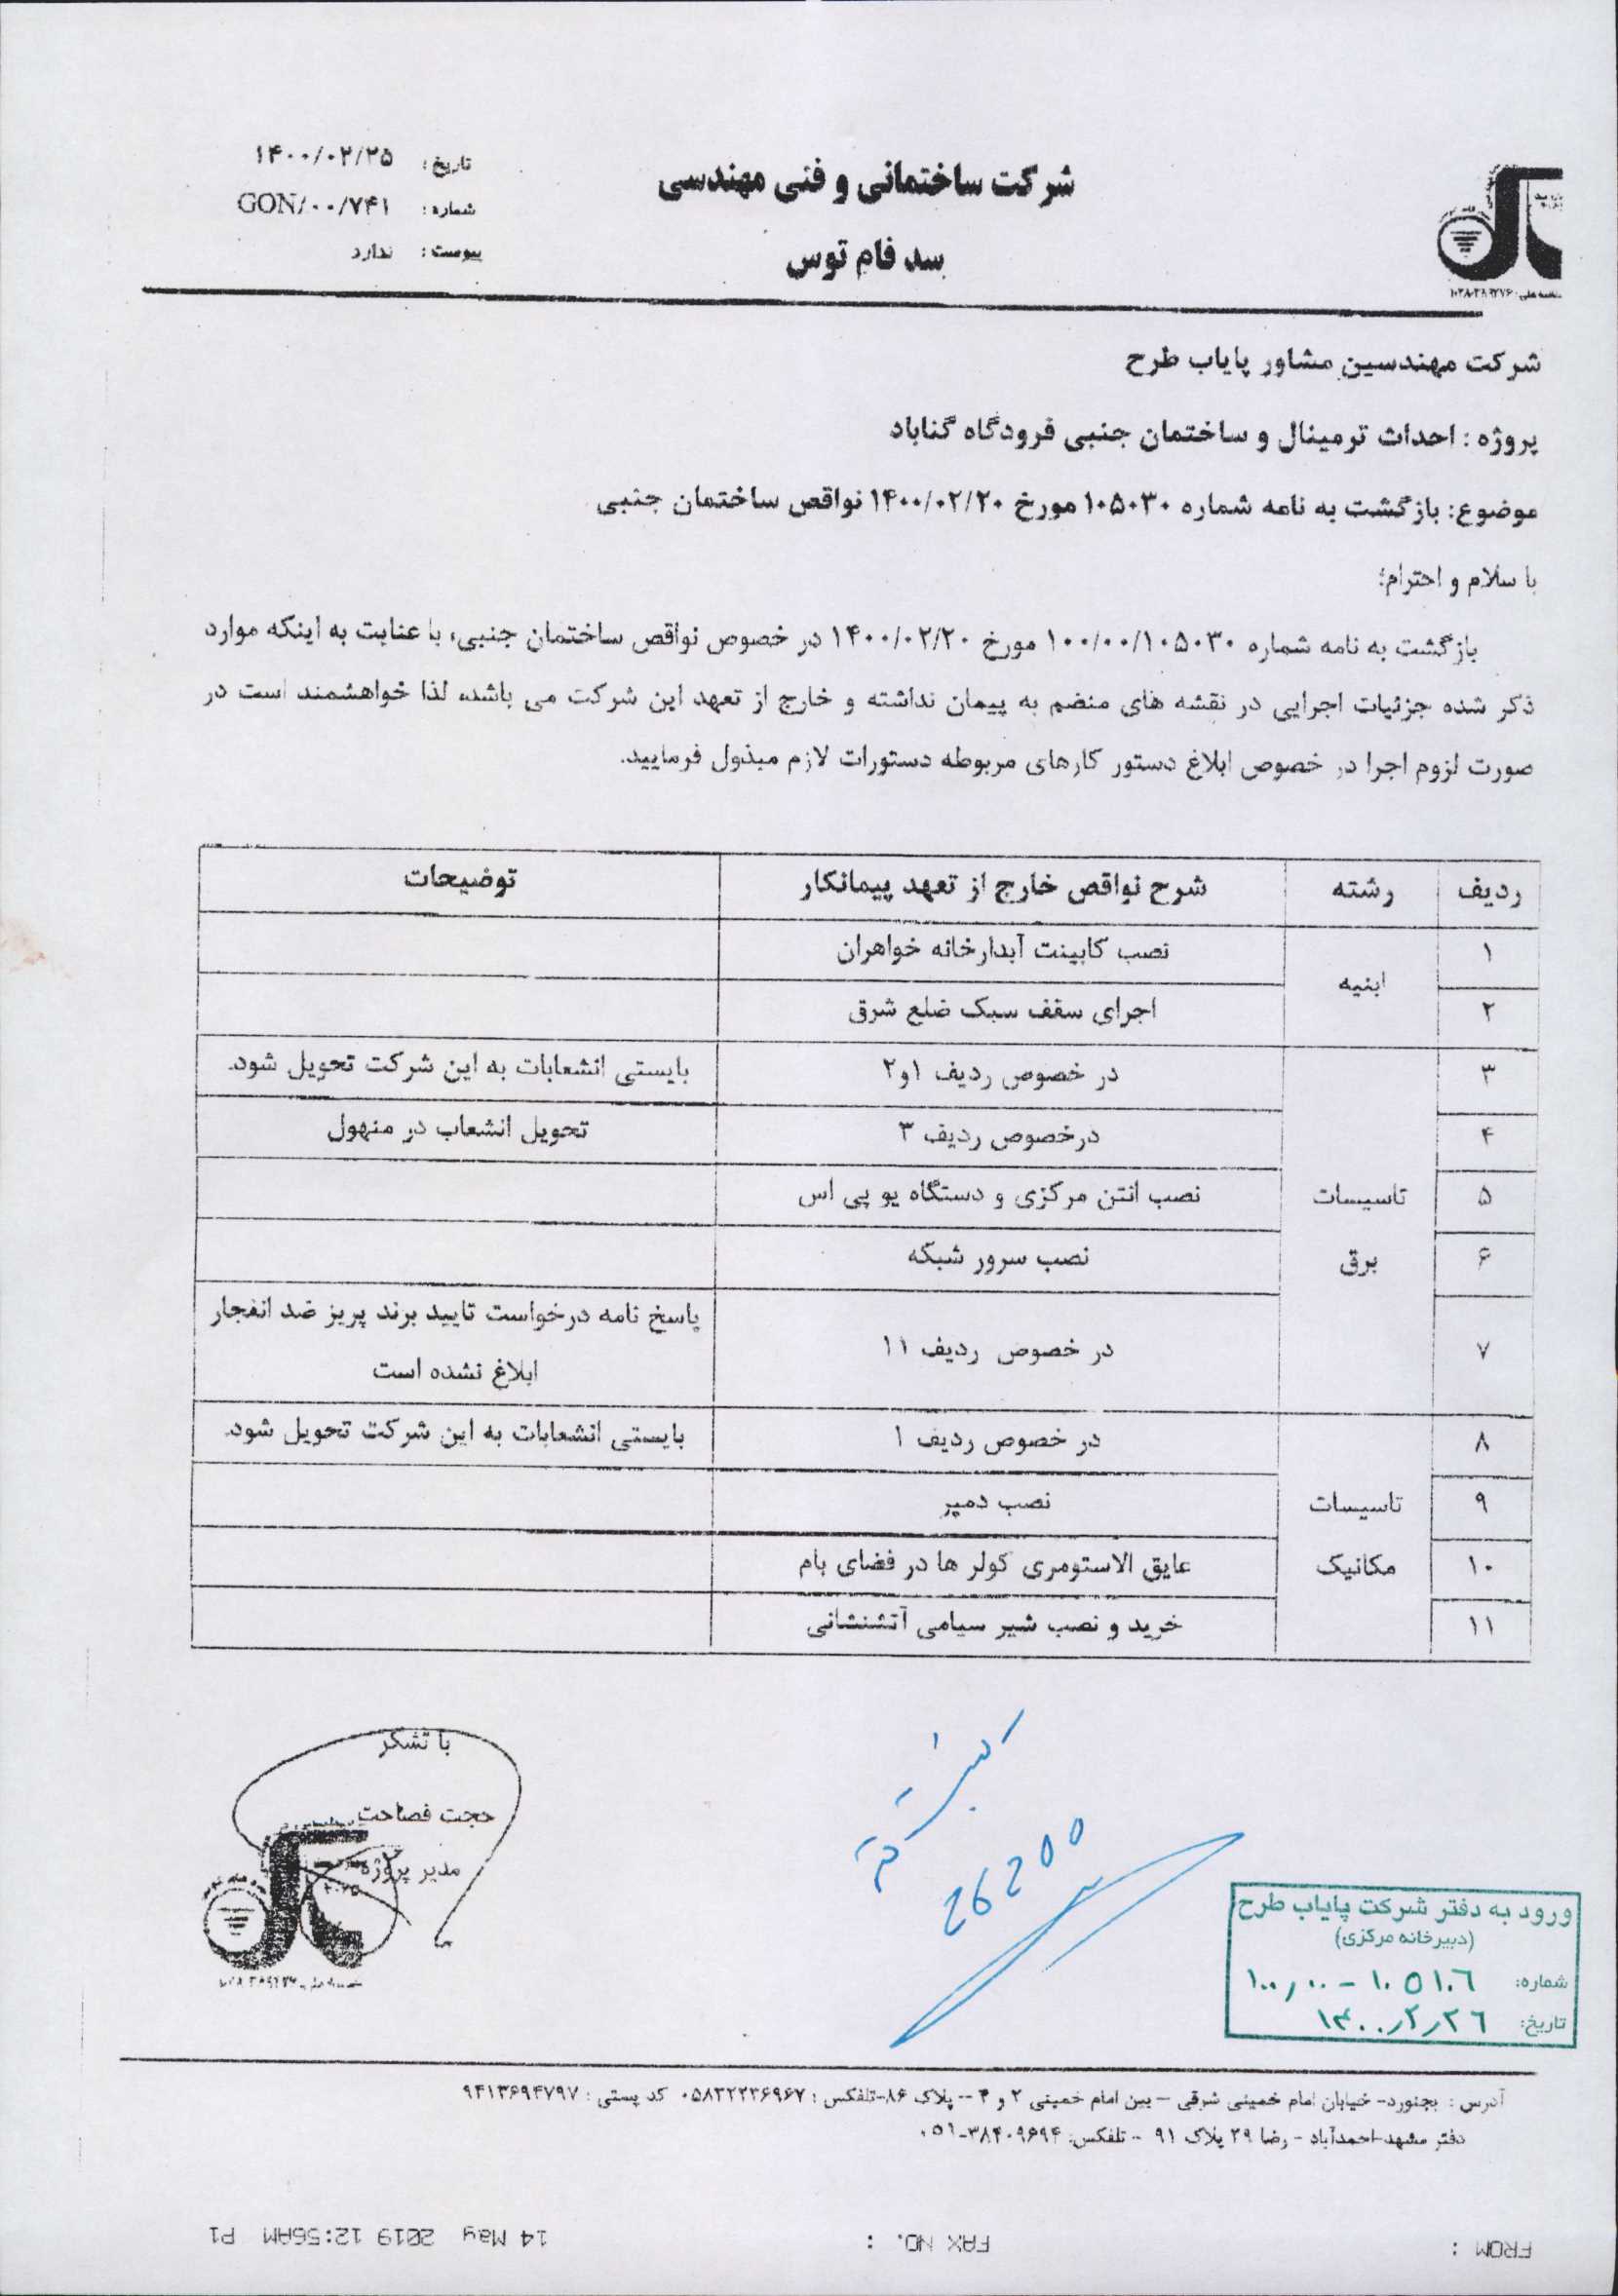 شرکت ساختمانی و فنی مهندسی
سد فام توس
تاریخ: ۱۴۰۰/۰۲/۲۵
شماره: GON/۰۰/۷۴۱
پیوست: ندارد
شرکت مهندسین مشاور پایاب طرح
پروژه : احداث ترمینال و ساختمان جنبی فرودگاه گناباد
موضوع: بازگشت به نامه شماره ۱۰۵۰۳۰ مورخ ۱۴۰۰/۰۲/۲۰ نواقص ساختمان جنبی
با سلام و احترام؛
بازگشت به نامه شماره ۱۰۰/۰۰/۱۰۵۰۳۰ مورخ ۱۴۰۰/۰۲/۲۰ در خصوص نواقص ساختمان جنبی، با عنایت به اینکه موارد
ذکر شده جزئیات اجرایی در نقشه های منضم به پیمان نداشته و خارج از تعهد این شرکت می باشد، لذا خواهشمند است در
صورت لزوم اجرا در خصوص ابلاغ دستور کارهای مربوطه دستورات لازم مبذول فرمایید.
ردیف رشته شرح نواقص خارج از تعهد پیمانکار توضیحات
۱ ابنیه نصب کابینت آبدارخانه خواهران
۲ اجرای سقف سبک ضلع شرق
۳ در خصوص ردیف ۱و۲ بایستی انشعابات به این شرکت تحویل شود.
۴ درخصوص ردیف ۳ تحویل انشعاب در منهول
۵ تاسیسات نصب انتن مرکزی و دستگاه یو پی اس
۶ برق نصب سرور شبکه
۷ در خصوص ردیف ۱۱ پاسخ نامه درخواست تایید برند پریز ضد انفجار
ابلاغ نشده است
۸ در خصوص ردیف ۱ بایستی انشعابات به این شرکت تحویل شود.
۹ تاسیسات نصب دمپر
۱۰ مکانیک عایق الاستومری کولر ها در فضای بام
۱۱ خرید و نصب شیر سیامی آتشنشانی
با تشکر
حجت فصاحت
مدیر پروژه
26200
ورود به دفتر شرکت پایاب طرح
(دبیرخانه مرکزی)
شماره: ۱۰۰,۰۰ - ۱۰۵۱۰۶
تاریخ: ۱۴۰۰٫۲٫۲۶
آدرس : بجنورد- خیابان امام خمینی شرقی – بین امام خمینی ۲ و ۴ -- پلاک ۸۶-تلفکس : ۰۵۸۳۲۲۳۶۹۶۷ کد پستی : ۹۴۱۳۶۹۴۷۹۷
دفتر مشهد-احمدآباد - رضا ۲۹ پلاک ۹۱ - تلفکس: ۳۸۴۰۹۶۹۴-۰۵۱
FROM : FAX NO. : 14 May 2019 12:56AM P1